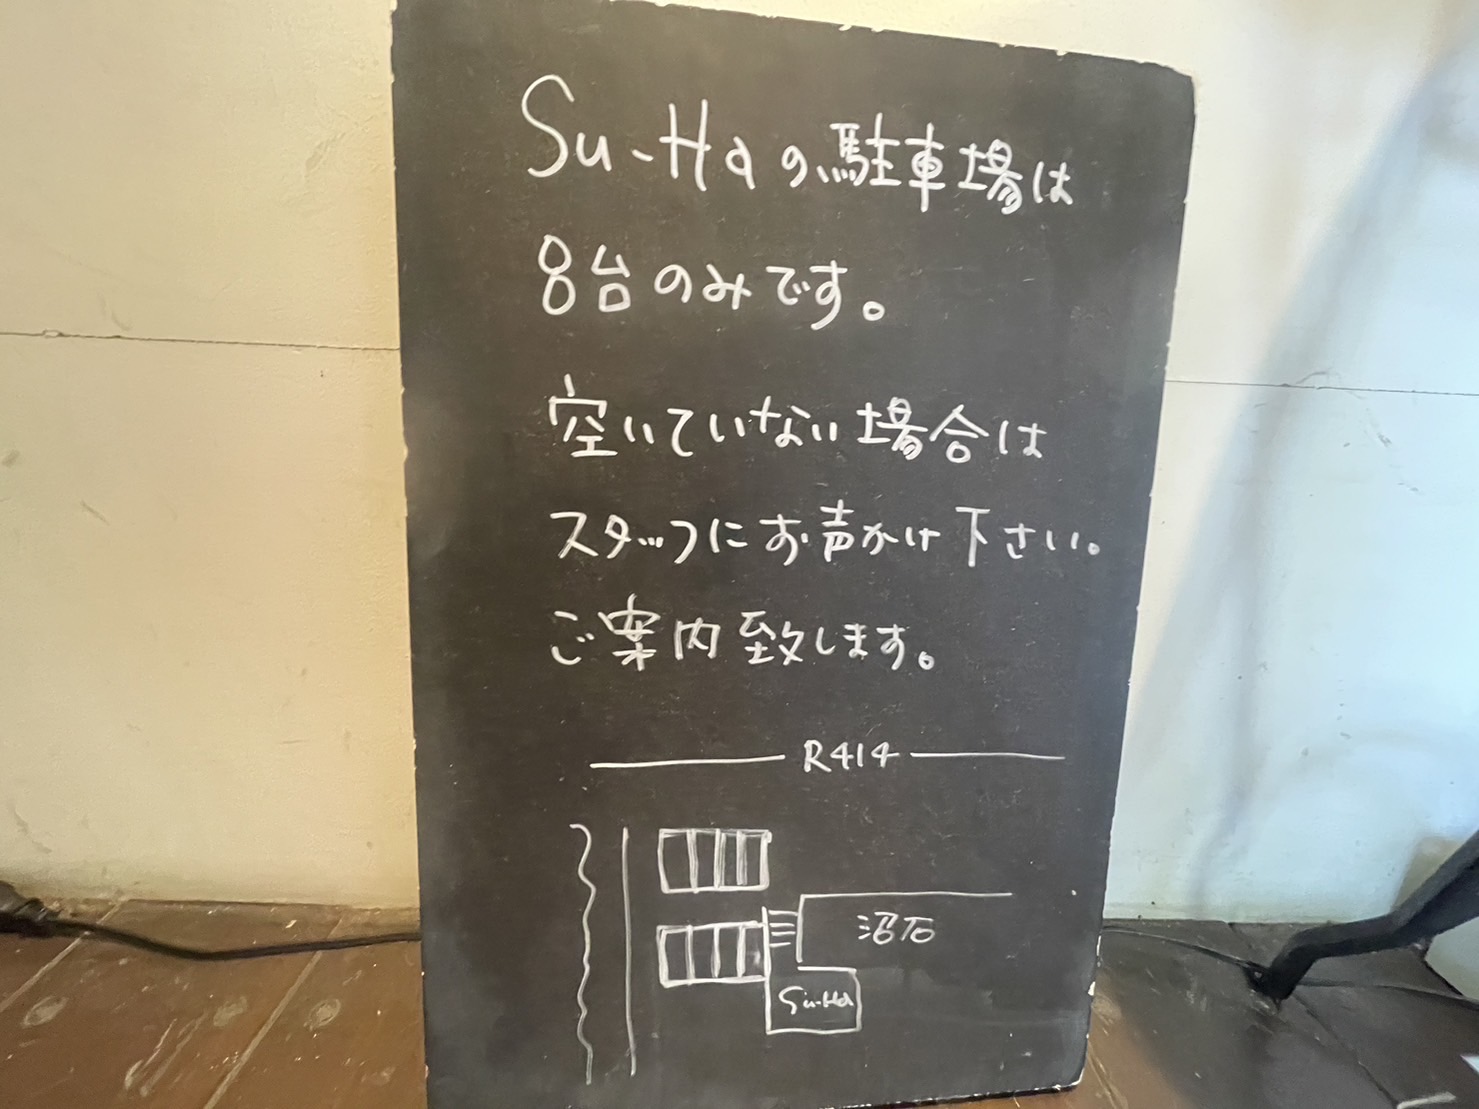 Su-Haの駐車場は
8台のみです。
空いていない場合は
スタッフにお声かけ下さい。
ご案内致します。
R414
沼石
Su-Ha